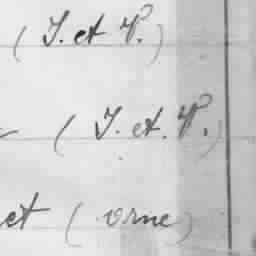 (I. et V.)
(I. et. V.)
et (orne)